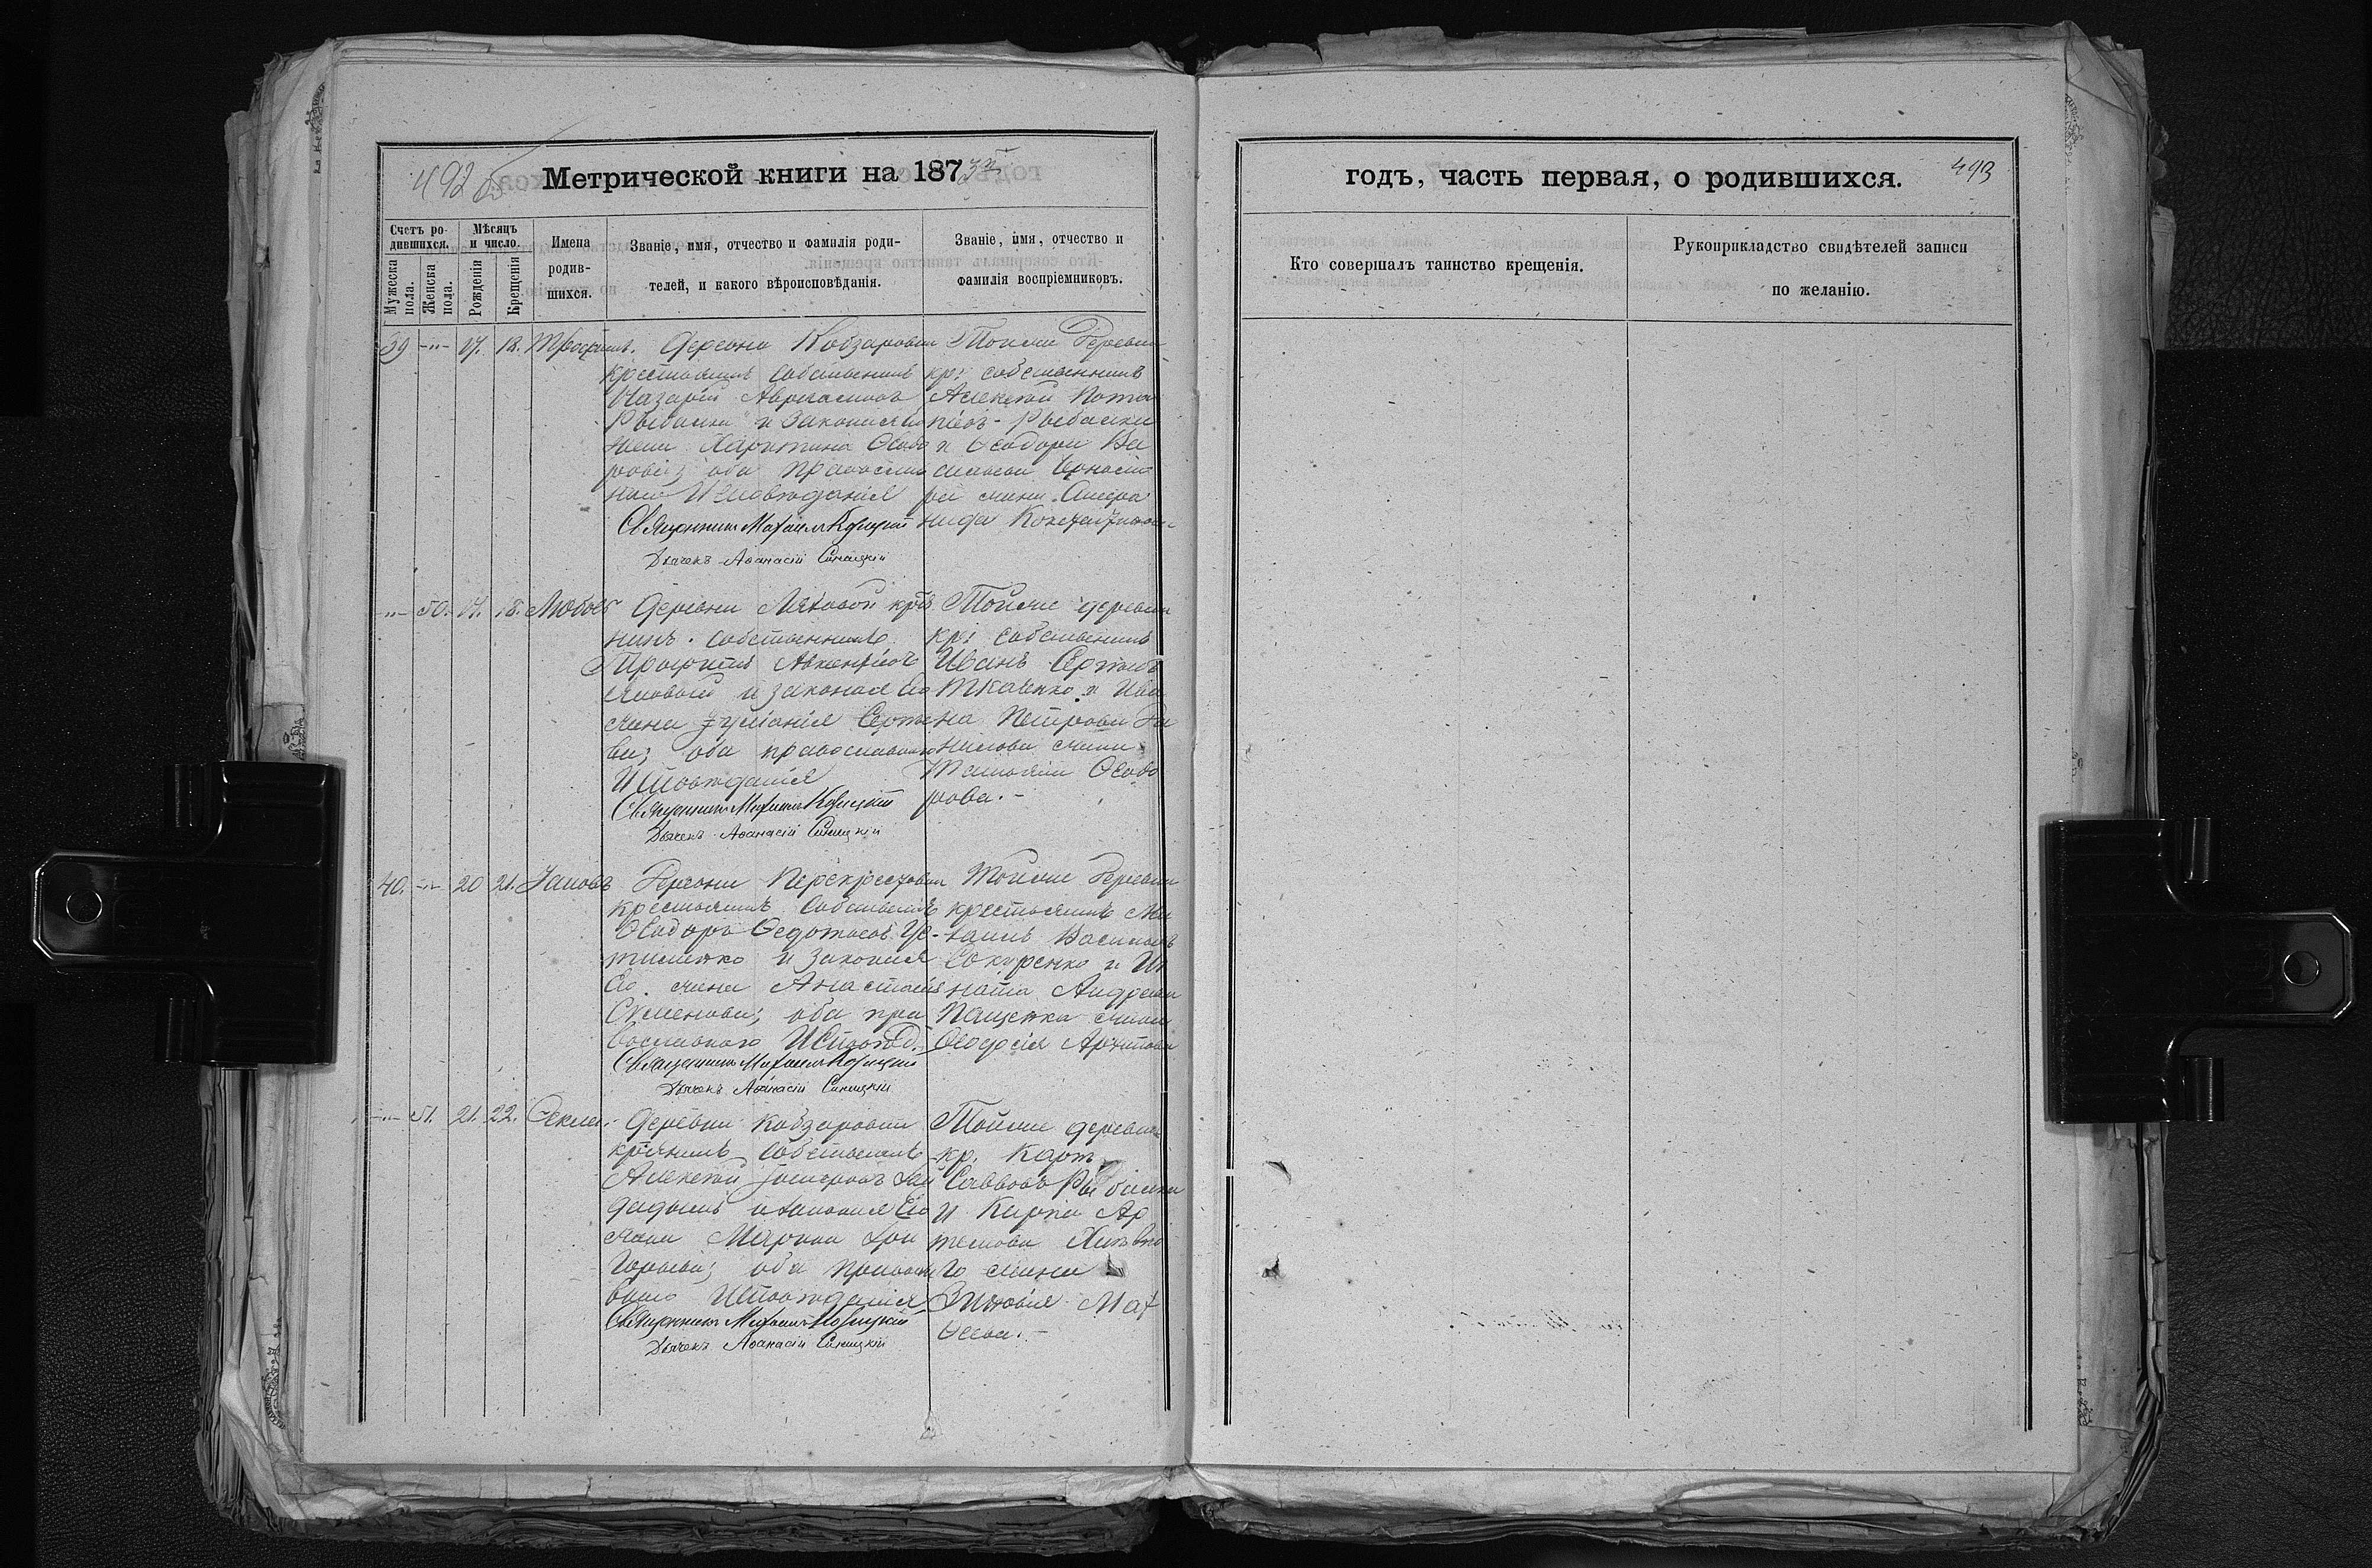 492 б
Метрической книги на 1873й
годъ, часть первая, о родившихся.
493
Счетъ родившихся.
Мѣсяцъ и число.
Мужеска пола.
Женска пола.
Рожденія
Крещенія
Имена родившихся.
Званіе, имя, отчество и фамилія родителей, и какого вѣроисповѣданія.
Званіе, имя, отчество и фамилія воспріемниковъ.
Кто совершалъ таинство крещенія.
Рукоприкладство свидѣтелей записи по желанію.
39 -"- 17. 18. Трофимъ.
Деревни Кобзаровки
крестьянинъ собственникъ
Назарій
Рыбалка и законная
жена Харитина Ѳеодо
рова; оба православ
наго Исповѣданія
Священникъ Михаилъ
Дьячекъ Аѳанасій Синицкій
Тойже деревни
кр: собственникъ
Алексѣй Пота
піевъ - Рыбалка
и Ѳеодора Ва
жена
Константинова
-"- 50. 17. 18. Любовь
Деревни кр
нинъ. собственникъ
Прокопій
и законная Его
жена Іуліанія Серге
ва; оба православнаго
Исповѣданія
Священникъ Михаилъ
Дьячекъ Аѳанасій Синицкій
Тойже деревни
кр: собственникъ
Иванъ
Ткаченко и Ива
на Петрова
жена
Ѳеодо
рова. -
40. -"- 20 21. Іаковъ
Деревни Перекрестовки
крестьянинъ собственникъ
Ѳеодоръ Ѳедотовъ Ус-
тименко и законная
Его жена Анастасія
Семенова; оба пра
вославнаго Исповѣд.
Священникъ Михаилъ
Дьячекъ Аѳанасій Синицкій
Тойже деревни
крестьянинъ Ми
хаилъ Васильевъ
и Иг
ната Андреева
Пащенка жена
Ѳеодосія Архипова
-"- 51. 21. 22. Ѳекла.
Деревни Кобзаровки
кр-нинъ собственникъ
Алексѣй Гай
дадымъ и законная Его
жена Марина Гри
горьева; оба правосла
внаго Исповѣданія
Священникъ Михаилъ
Дьячекъ Аѳанасій Синицкій
Тойже деревни
кр. Карпъ
Саввовъ Рыбалка
и Карпа Ар
темова
го жена
Зиновія Мат
ѳеева. -